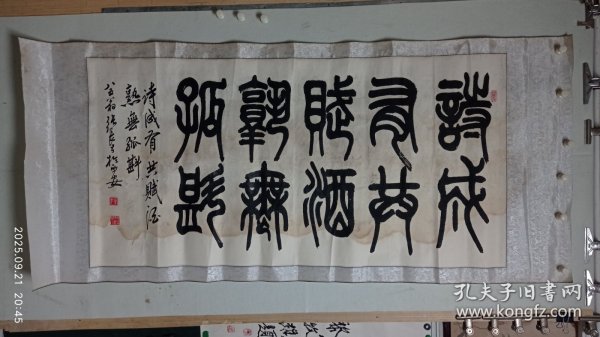 詩成
有共
賦酒
熟無
孤斟
诗成有共賦酒
熟無孤斟
2025.09.21 20:45
孔夫子旧书网